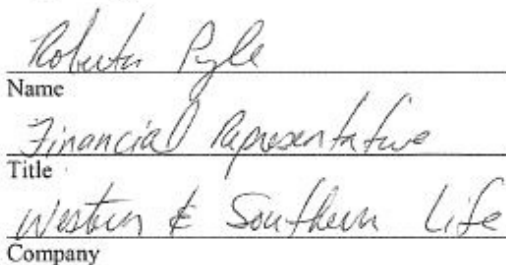 Roberta Pyle
Name
Financial Representative
Title
Western & Southern Life
Company